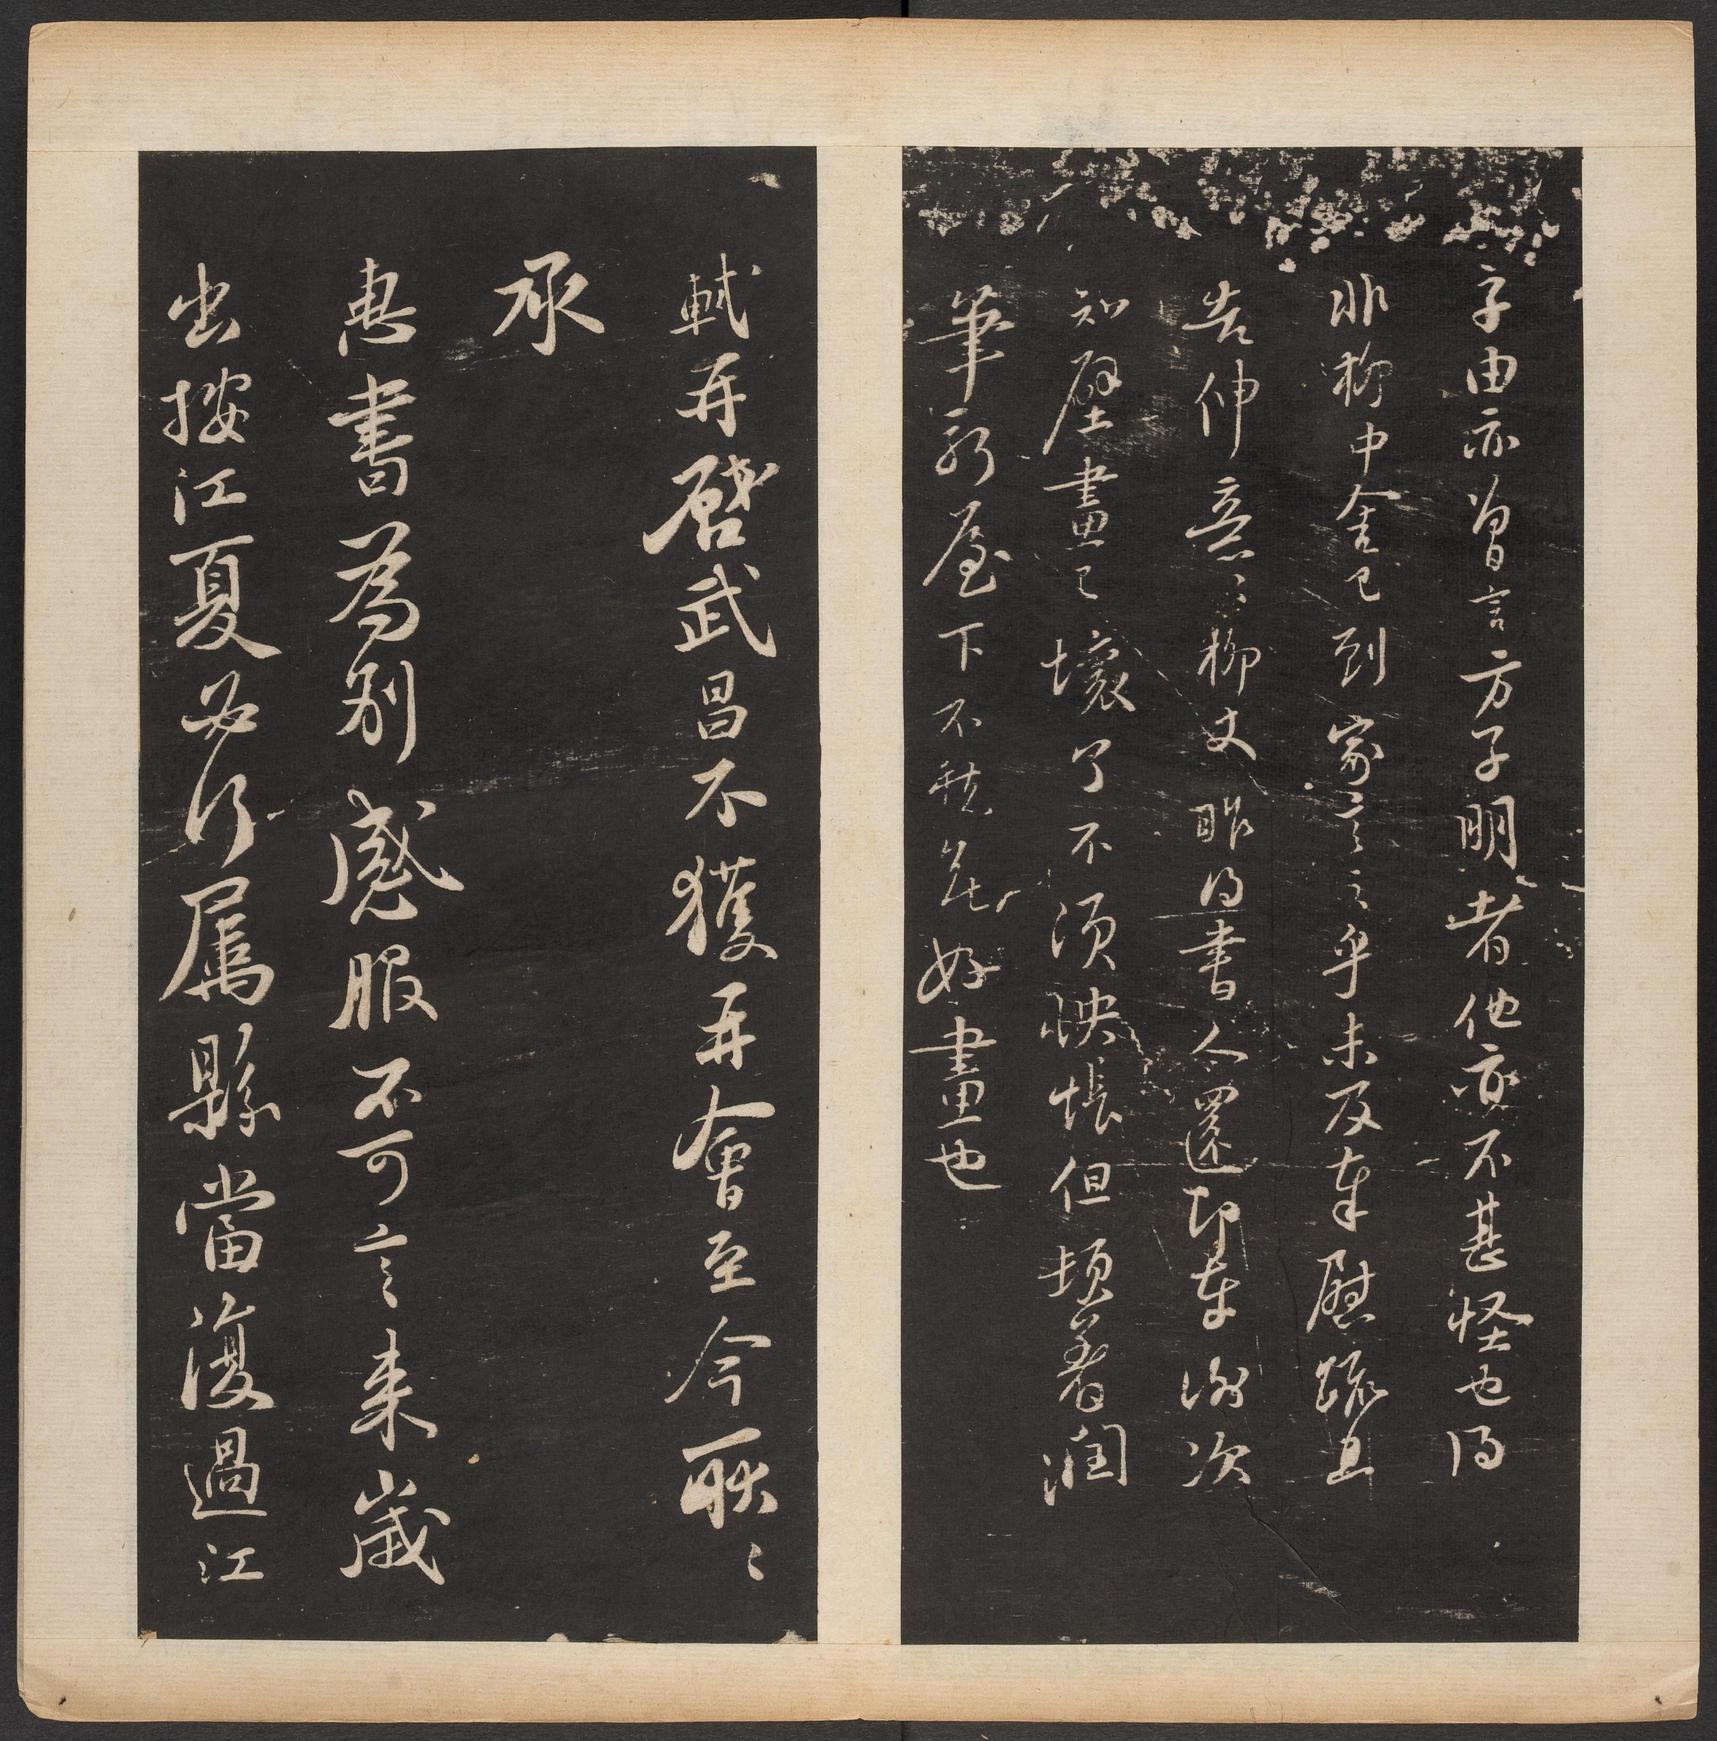 子由亦曾言方子明者他亦不甚怪也得
非柳中舍已到家言之乎未及奉慰疏且
告伸意〻柳丈昨得書人還即奉謝次
知壁畫已壞了不須怏悵但頓著潤
筆新屋下不愁無好畫也
軾再啓武昌不獲再會至今耿〻
承
惠書為別感服不可言来歲
出按江夏必行屬縣當復過江